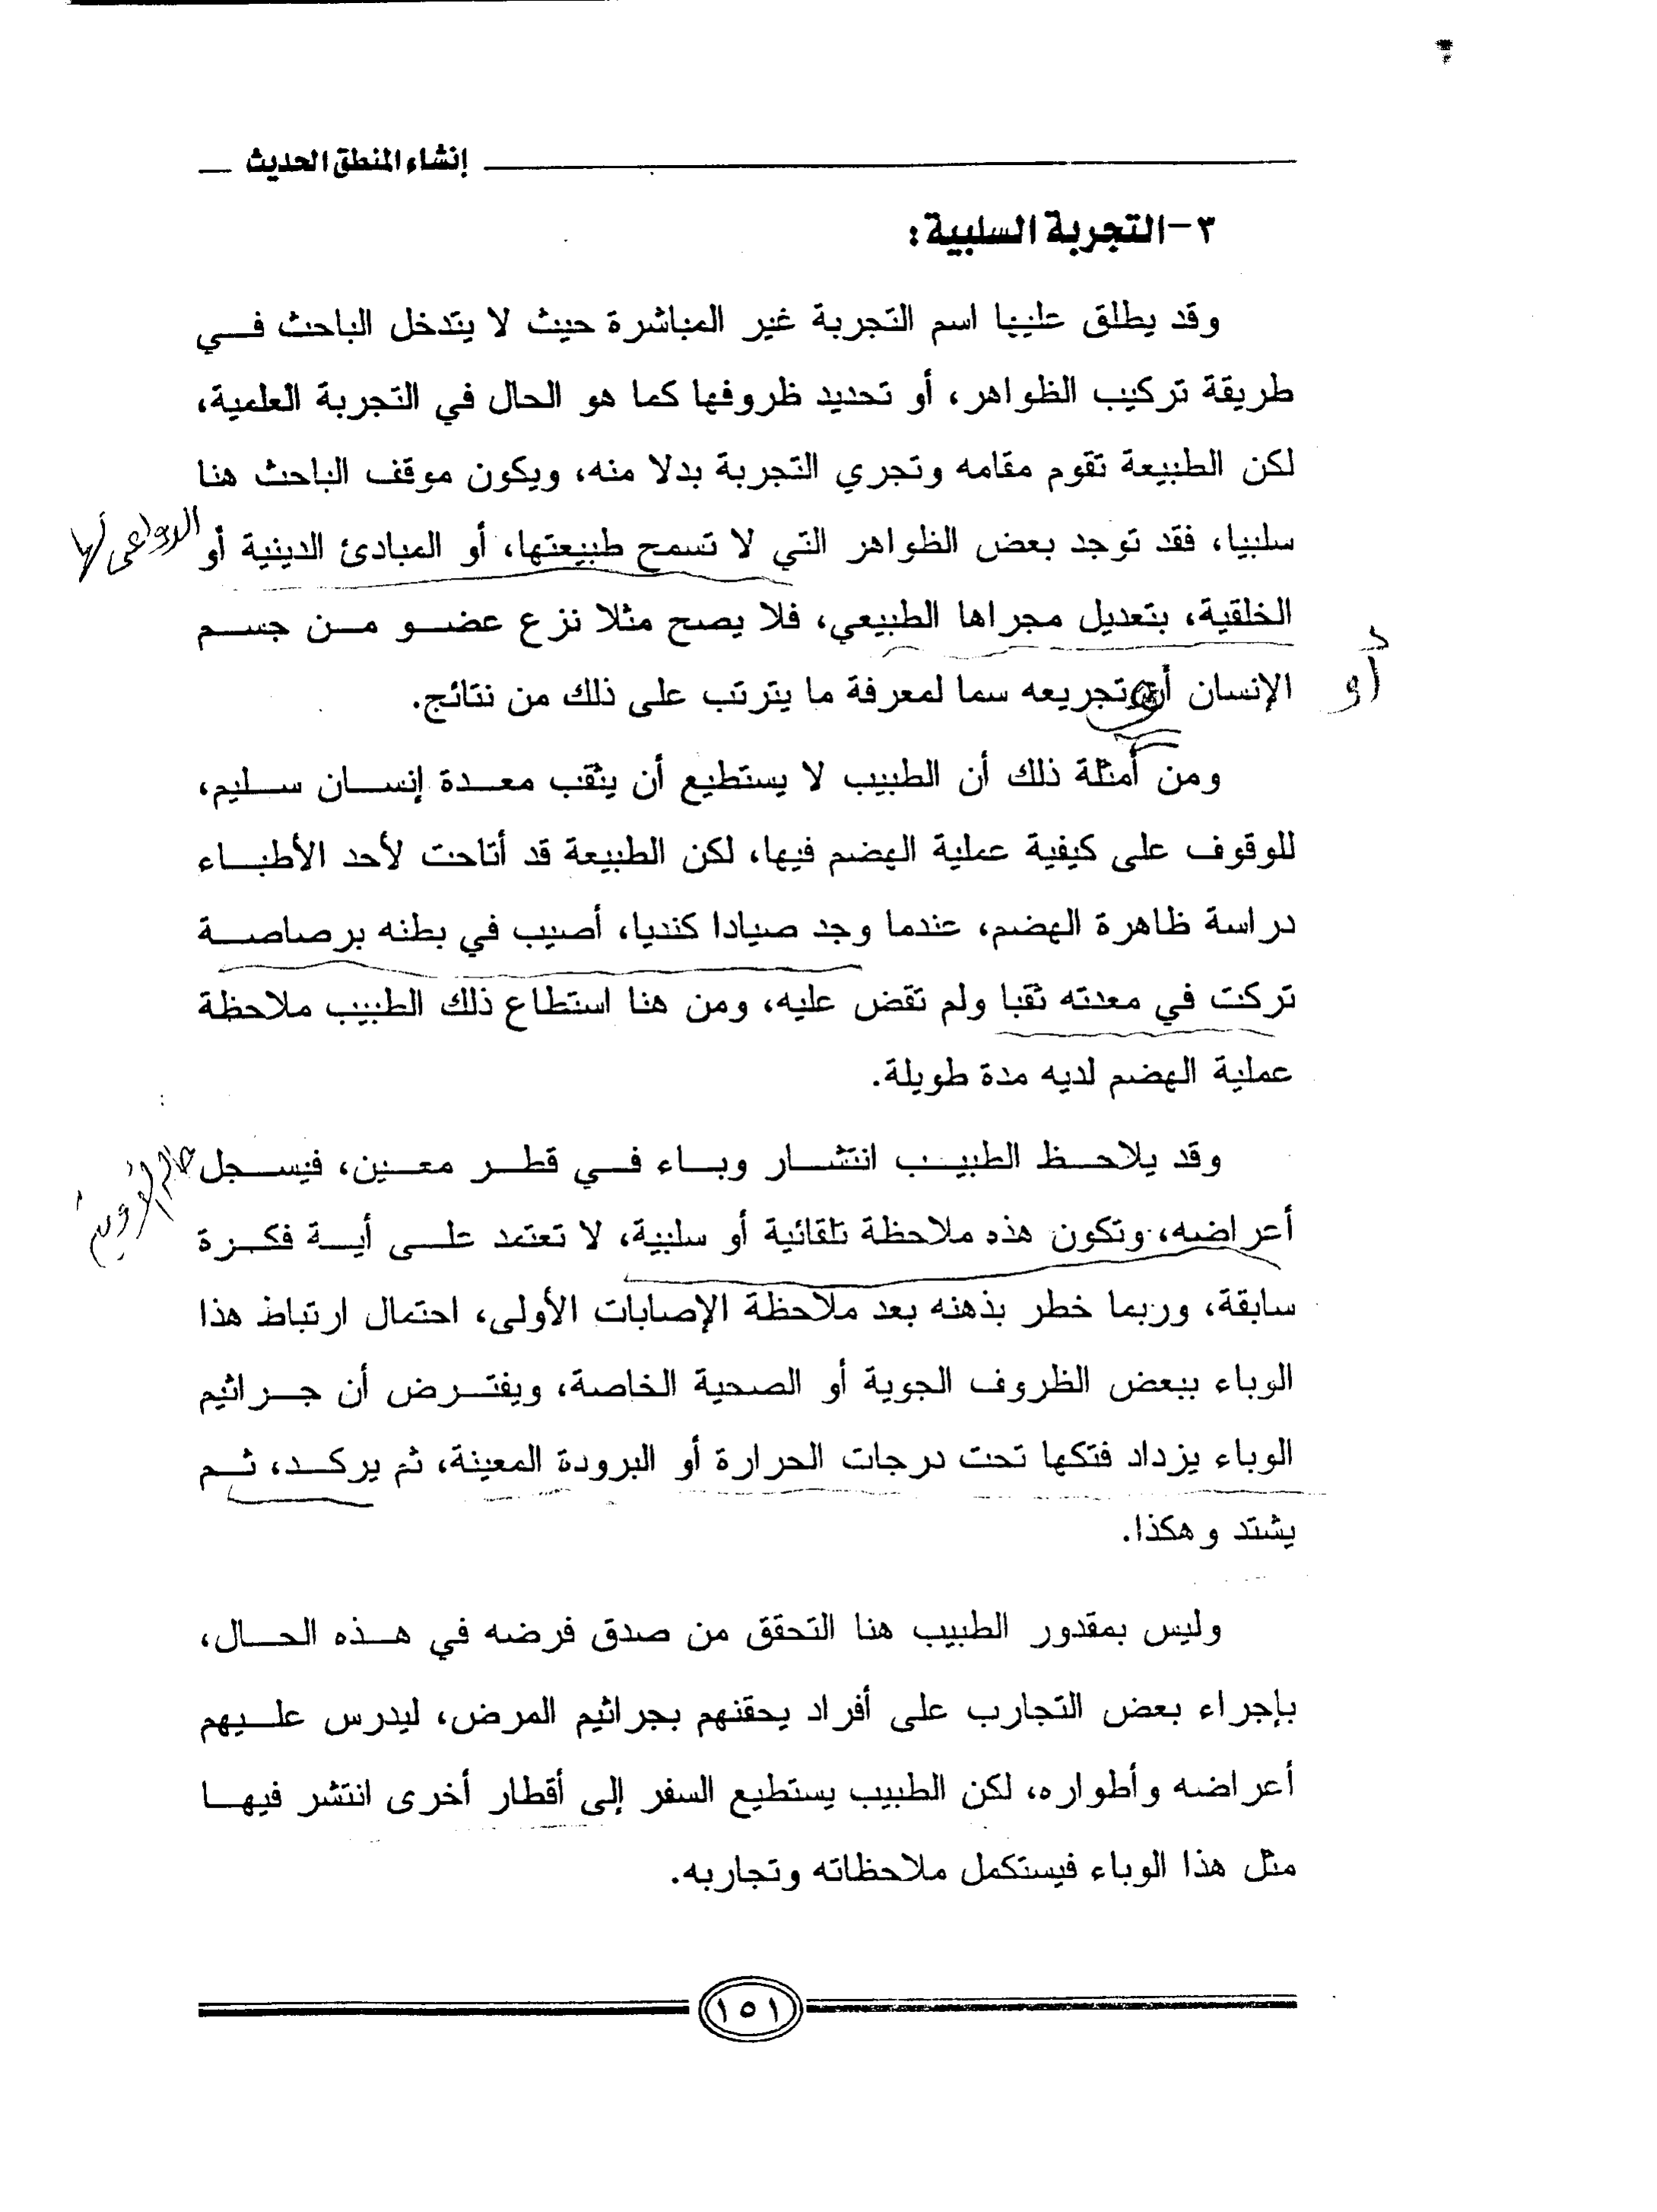 إنشاء المنطق الحديث
٣-التجربة السلبية:
وقد يطلق عليها اسم التجربة غير المباشرة حيث لا يتدخل الباحث في
طريقة تركيب الظواهر، أو تحديد ظروفها كما هو الحال في التجربة العلمية،
لكن الطبيعة تقوم مقامه وتجري التجربة بدلا منه، ويكون موقف الباحث هنا
سلبيا، فقد توجد بعض الظواهر التي لا تسمح طبيعتها، أو المبادئ الدينية أو
الخلقية، بتعديل مجراها الطبيعي، فلا يصح مثلا نزع عضو من جسم
أو
الإنسان أن تجريعه سما لمعرفة ما يترتب على ذلك من نتائج.
ومن أمثلة ذلك أن الطبيب لا يستطيع أن يثقب معدة إنسان سليم،
للوقوف على كيفية عملية الهضم فيها، لكن الطبيعة قد أتاحت لأحد الأطباء
دراسة ظاهرة الهضم، عندما وجد صيادا كنديا، أصيب في بطنه برصاصة
تركت في معدته ثقبا ولم تقض عليه، ومن هنا استطاع ذلك الطبيب ملاحظة
عملية الهضم لديه مدة طويلة.
وقد يلاحظ الطبيب انتشار وباء في قطر معين، فيسجل
أعراضه، وتكون هذه ملاحظة تلقائية أو سلبية، لا تعتمد على أية فكرة
سابقة، وربما خطر بذهنه بعد ملاحظة الإصابات الأولى، احتمال ارتباط هذا
الوباء ببعض الظروف الجوية أو الصحية الخاصة، ويفترض أن جراثيم
الوباء يزداد فتكها تحت درجات الحرارة أو البرودة المعينة، ثم يركد، ثم
يشتد وهكذا.
وليس بمقدور الطبيب هنا التحقق من صدق فرضه في هذه الحال،
بإجراء بعض التجارب على أفراد يحقنهم بجراثيم المرض، ليدرس عليهم
أعراضه وأطواره، لكن الطبيب يستطيع السفر إلى أقطار أخرى انتشر فيها
مثل هذا الوباء فيستكمل ملاحظاته وتجاربه.
١٥١